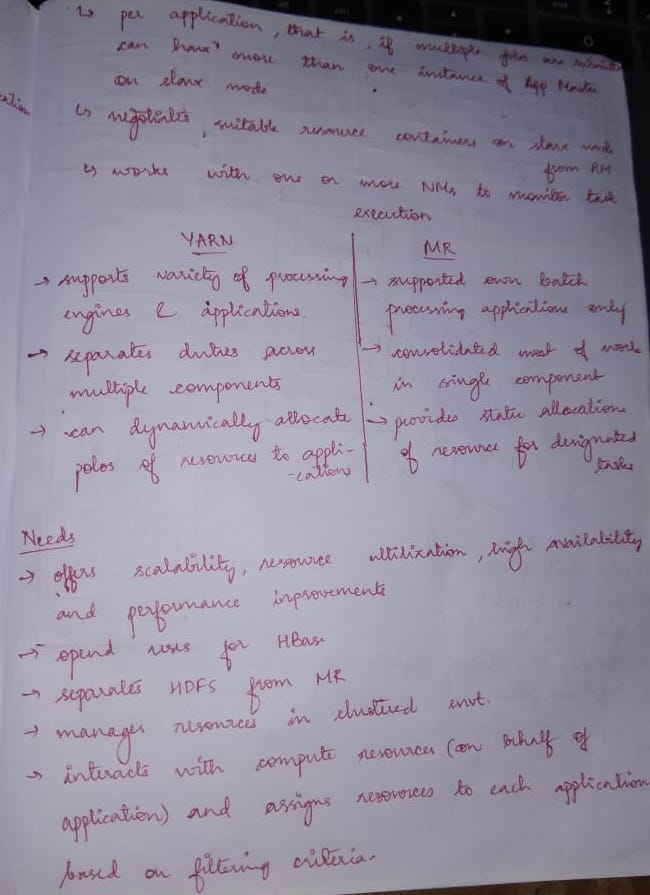 ↳ per application, that is, if multiple jobs are submitted
can have more than one instance of App Master
on slave node
↳ negotiates, suitable resource containers on slave node
from RM
↳ works with one or more NMs to monitor task
execution
YARN
→ supports variety of processing
engines & applications
→ separates duties across
multiple components
→ can dynamically allocate
polos of resources to appli-
-cations
MR
→ supported own batch
processing applications only
→ consolidated most of work
in single component
→ provides static allocation
of resource for designated
tasks
Needs
→ offers scalability, resource ultilization, high availability
and performance inprovements
→ opend uses for HBase
→ separates HDFS from MR
→ manages resources in clustered envt.
→ interacts with compute resources (on behalf of
application) and assigns resources to each application
based on filtering criteria.